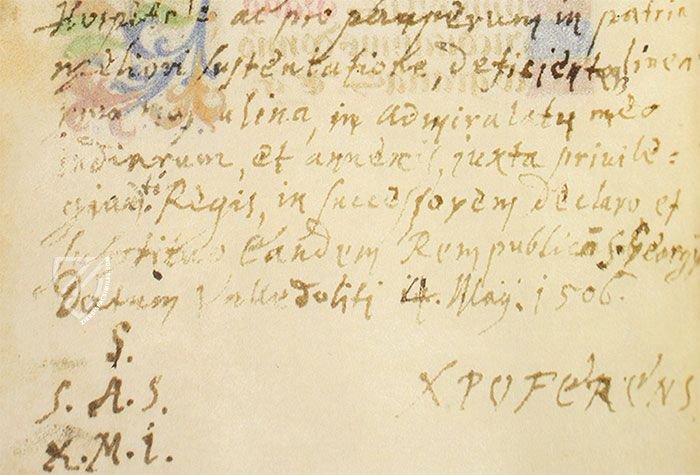 Hospitale ac pro pauperum in patria
meliori sustentatione, deficiente linea
mea masculina, in Admiralatu meo
indiarum, et annexis, juxta privile-
gium dti Regis, in successorem declaro et
substituo Eandem Rempublicā S. Georgii
Datum Valledoliti 4. Maij. 1506.
S.
S. A. S.
X. M. I.
XPOFERENS